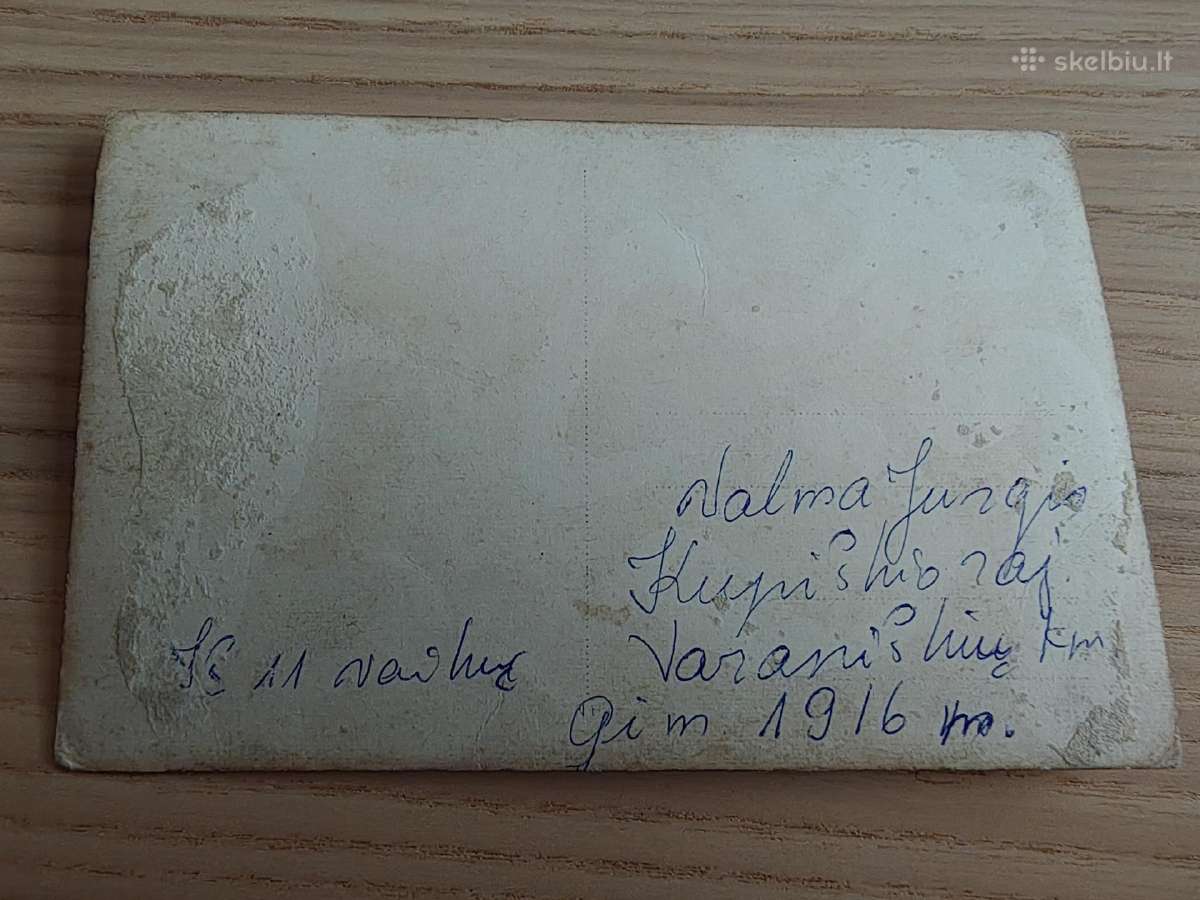 skelbiu.lt
Valma Jurgis
Kupiškio raj.
Varaniškių km
gim 1916 m.
Iš 11 vaikų